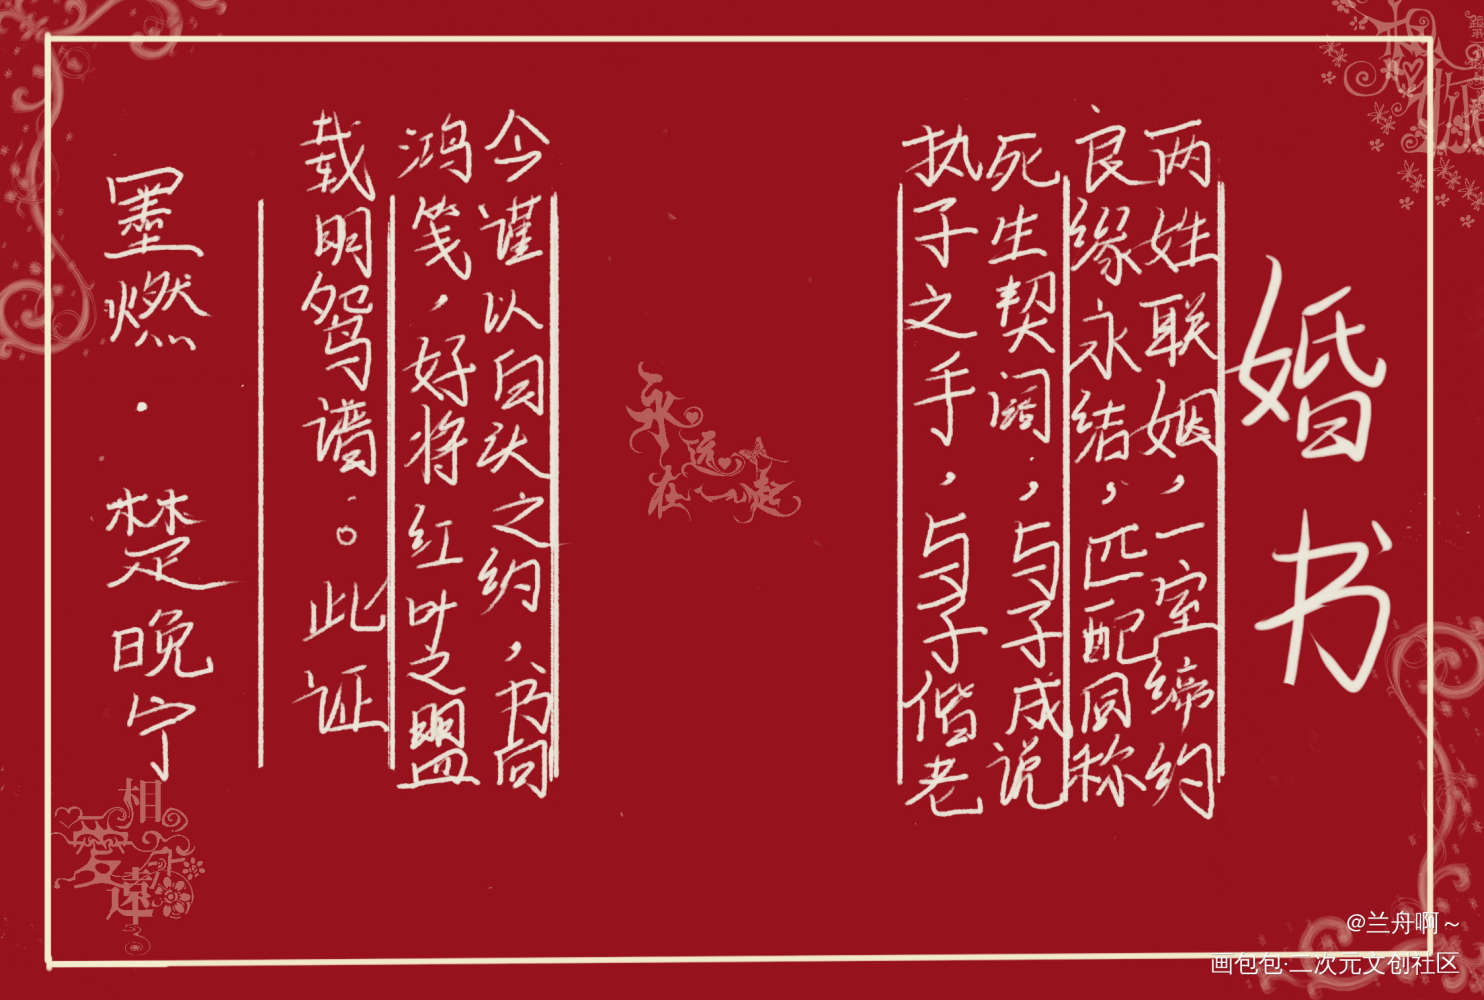 婚书
两姓联姻，一室缔约
良缘永结，匹配同称
死生契阔，与子成说
执子之手，与子偕老
今谨以白头之约，书向
鸿笺，好将红叶之盟
载明鸳谱。此证
墨燃·楚晚宁
永远在一起
相爱永遠
@兰舟啊～
画包包·二次元文创社区